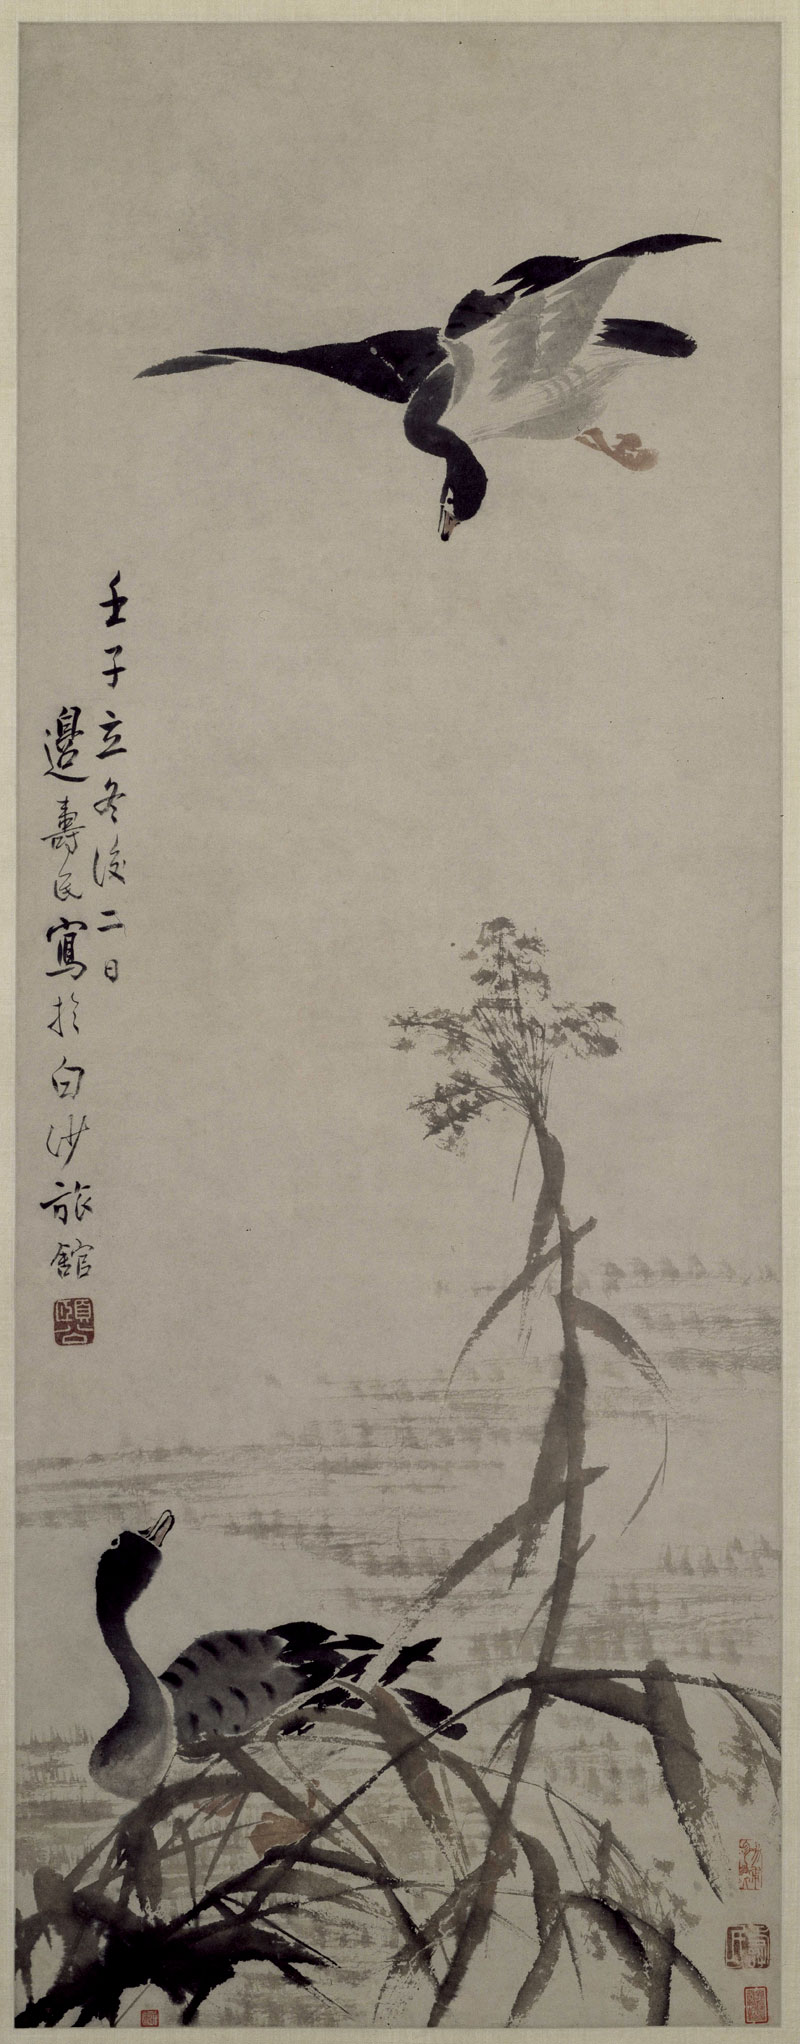 壬子立冬後二日
邊壽民寫於白沙旅館
頤公